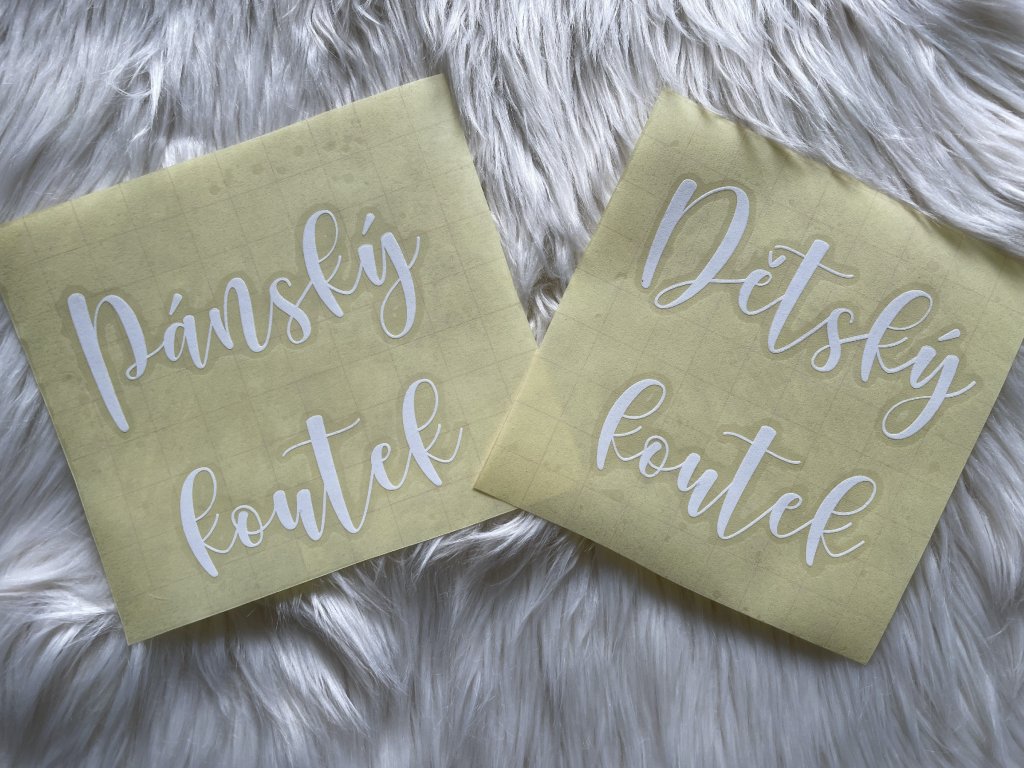 Pánský
koutek
Dětský
koutek